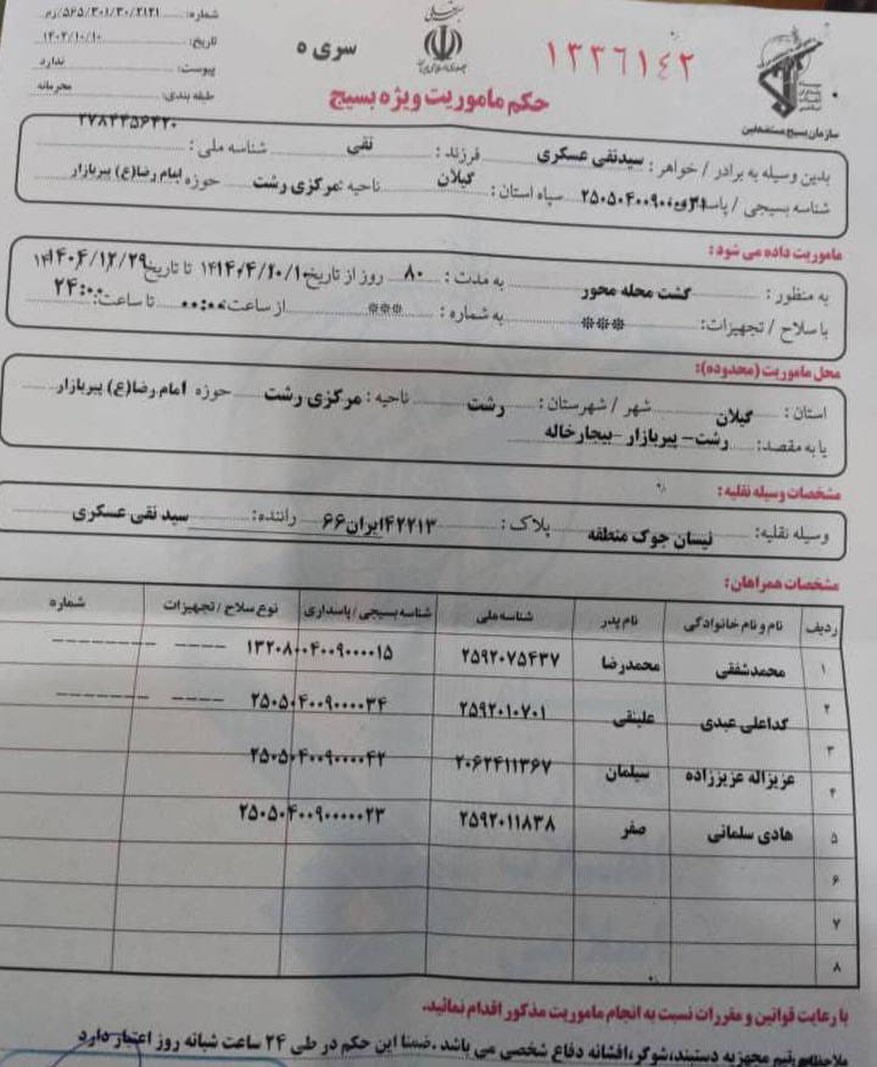 شماره: ۵۶۵/۳۰۱/۳۰/۲۱۲۱/زم
تاریخ: ۱۴۰۴/۱۰/۱۰
پیوست: ندارد
طبقه بندی: محرمانه
سری ه
جمهوری اسلامی ایران
۱۳۳۶۱۴۲
سازمان بسیج مستضعفین
حکم ماموریت ویژه بسیج
بدین وسیله به برادر / خواهر: سیدنقی عسکری فرزند: نقی شناسه ملی:
شناسه بسیجی / سپاه استان: گیلان ناحیه: مرکزی رشت حوزه امام رضا(ع) پیربازار
ماموریت داده می شود:
به منظور: گشت محله محور به مدت: ۸۰ روز از تاریخ تا تاریخ
با سلاح / تجهیزات: *** به شماره: *** از ساعت: ۰۰:۰۰ تا ساعت: ۲۴:۰۰
محل ماموریت (محدوده):
استان: گیلان شهر / شهرستان: رشت ناحیه: مرکزی رشت حوزه امام رضا(ع) پیربازار
یا به مقصد: رشت- پیربازار -بیجارخاله
مشخصات وسیله نقلیه:
وسیله نقلیه: نیسان جوک منطقه پلاک: ۴۲۲۱۳ایران۶۶ راننده: سید نقی عسکری
مشخصات همراهان:
ردیف نام و نام خانوادگی نام پدر شناسه ملی شناسه بسیجی / پاسداری نوع سلاح / تجهیزات شماره
۱ محمدشفقی محمدرضا ۲۵۹۲۰۷۵۴۳۷ ---- -------
۲ گداعلی عبدی علینقی ۲۵۹۲۰۱۰۷۰۱ ---- -------
۳
عزیزاله عزیززاده سیلمان ۲۰۶۲۴۱۱۳۶۷
۴
۵ هادی سلمانی صفر ۲۵۹۲۰۱۱۸۳۸
۶
۷
۸
با رعایت قوانین و مقررات نسبت به انجام ماموریت مذکور اقدام نمائید.
تیم مجهزبه دستبند،شوکر،افشانه دفاع شخصی می باشد .ضمنا این حکم در طی ۲۴ ساعت شبانه روز اعتبار دارد